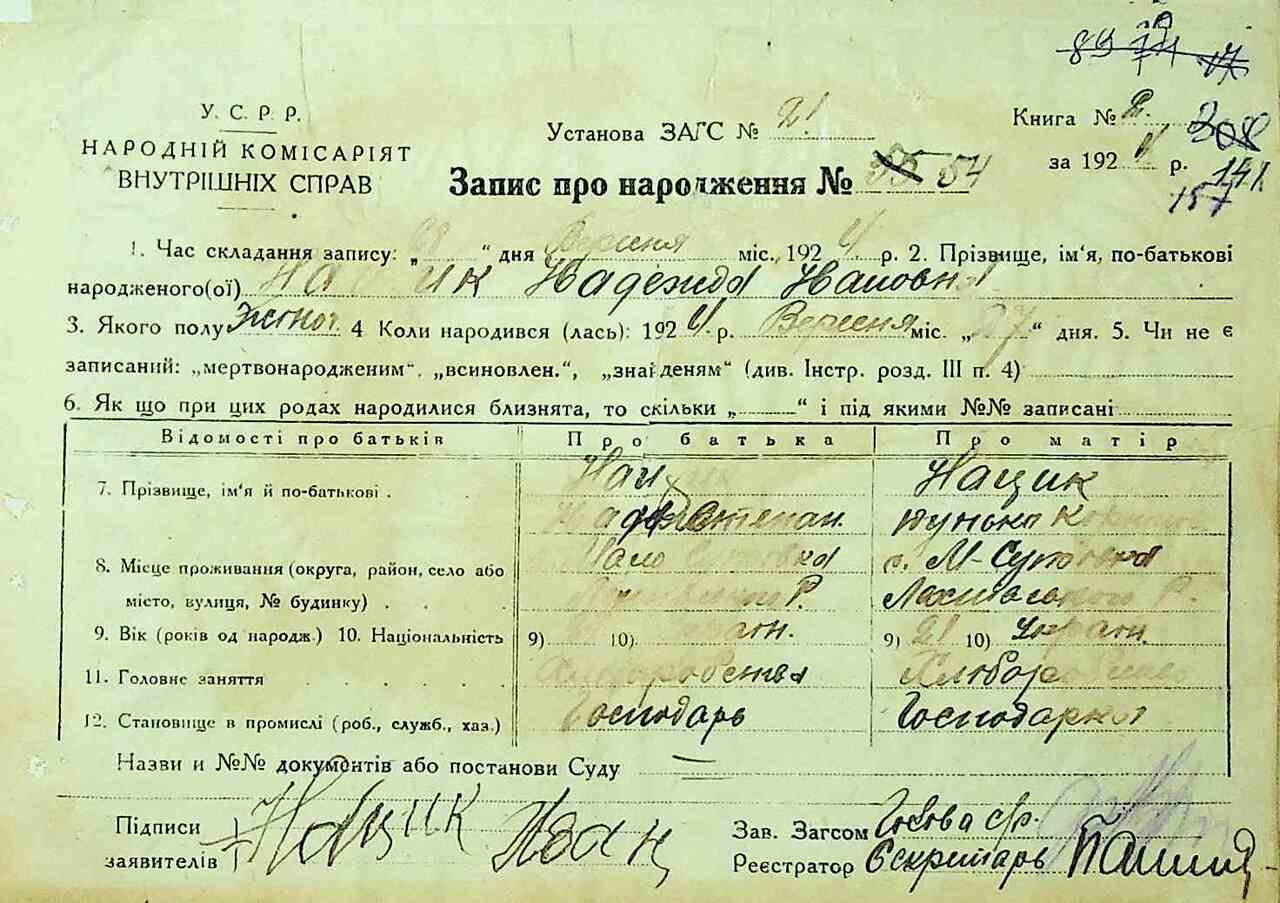 У. С. Р. Р.
НАРОДНІЙ КОМІСАРІЯТ
ВНУТРІШНІХ СПРАВ
Установа ЗАГС № 21
Книга № 2
308
за 192 4 р.
141
157
Запис про народження № 54
1. Час складання запису: „ “ дня Вересня міс. 192 4 р. 2. Прізвище, ім'я, по-батькові
народженого(ої) Нацик Надежда Івановна
3. Якого полу Жіноч 4 Коли народився (лась): 192 4 р. Вересня міс. „27“ дня. 5. Чи не є
записаний: „мертвонародженим“. „всиновлен.“, „знайденям“ (див. Інстр. розд. III п. 4)
6. Як що при цих родах народилися близнята, то скільки „ “ і під якими №№ записані
Відомості про батьків Про батька Про матір
7. Прізвище, ім'я й по-батькові . Нацик Нацик
Степан. Дунька
8. Місце проживання (округа, район, село або Мало с. М-
місто, вулиця, № будинку) . . . . Р. Р.
9. Вік (років од народж.) 10. Національність 9) 10) 9) 21 10) Украін.
11. Головне заняття . . . . Хлібороб
12. Становище в промислі (роб., служб., хаз.) Господарь Господарка
Назви и №№ документів або постанови Суду —
Підписи
заявителів Нацик Іван
Зав. Загсом Голова с/р.
Реєстратор Секретарь